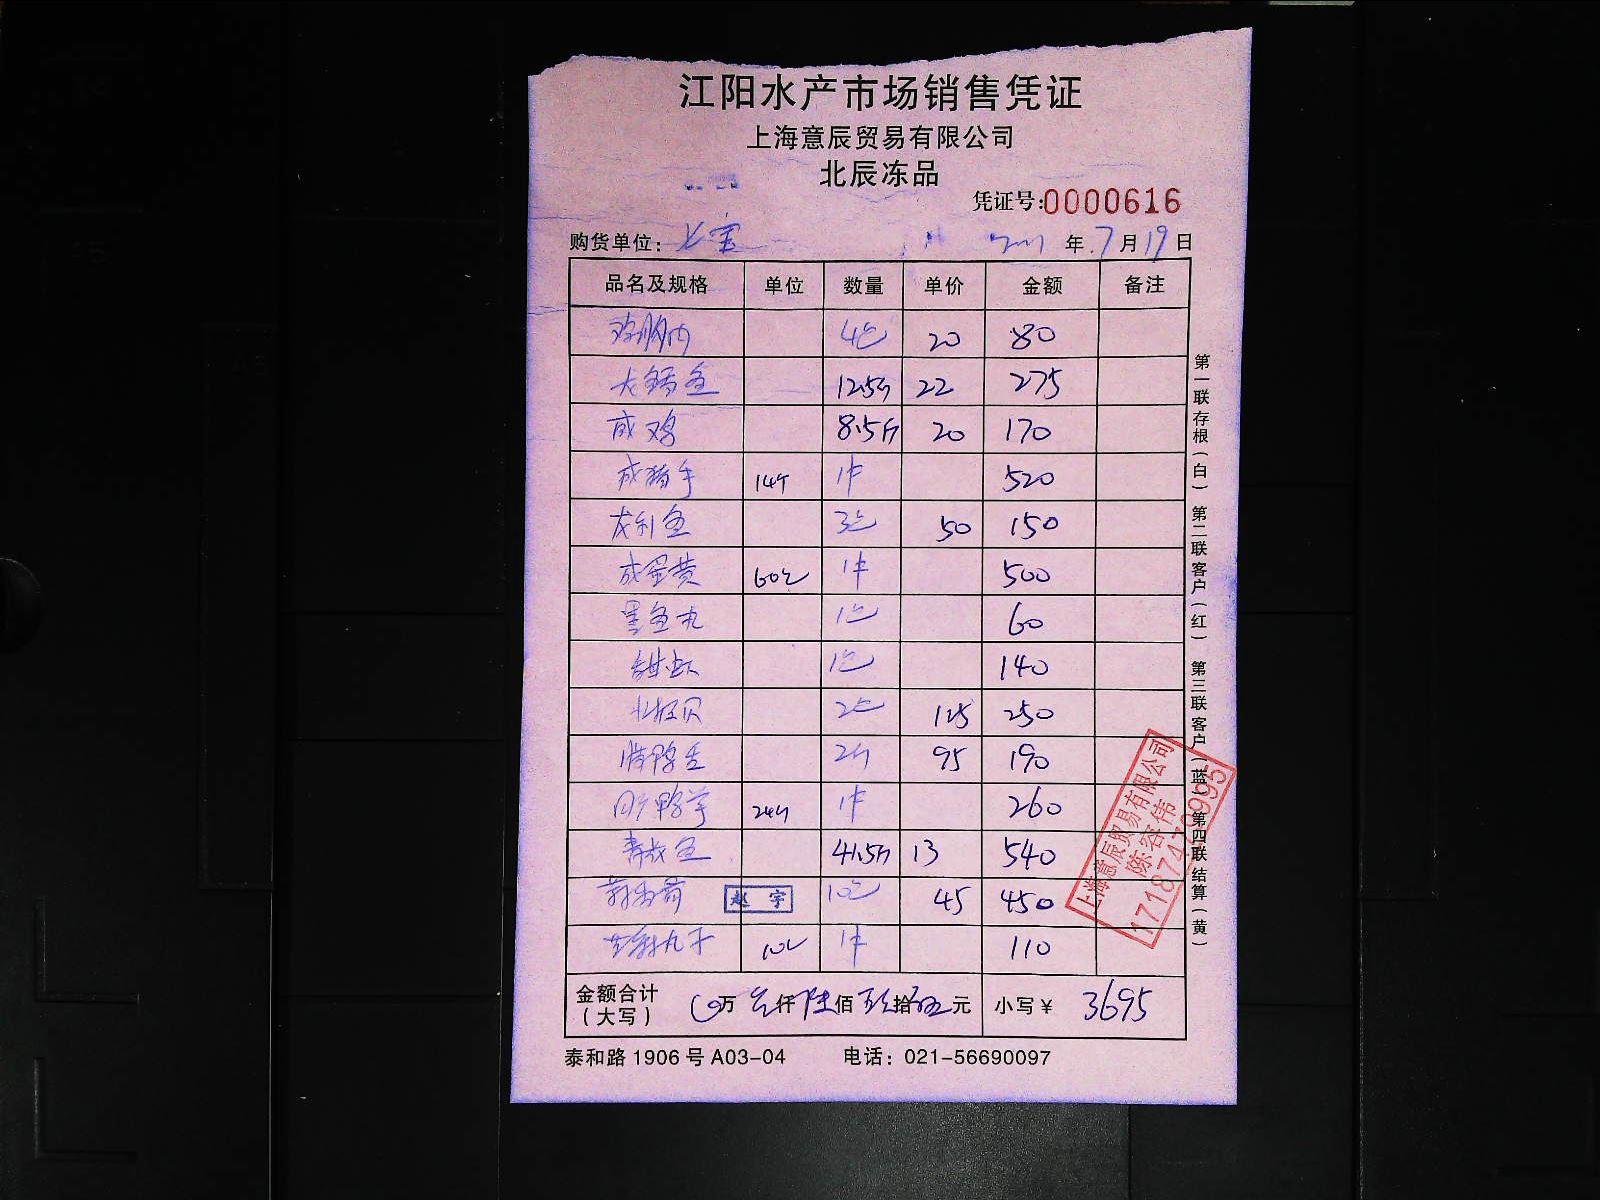 江阳水产市场销售凭证
上海意辰贸易有限公司
北辰冻品
凭证号:0000616
购货单位: 七宝 年 7 月 19 日
品名及规格 单位 数量 单价 金额 备注
鸡胸肉 4包 20 80
大鳕鱼 12.5斤 22 275
咸鸡 8.5斤 20 170
咸猪手 14个 1件 520
龙利鱼 3包 50 150
咸蛋黄 60包 1件 500
墨鱼丸 1包 60
甜虾 1包 140
北极贝 2包 125 250
腊鸭舌 2斤 95 190
鸭掌 24斤 1件 260
青鱼 41.5斤 13 540
赵宇 10包 45 450
丸子 10包 1件 110
金额合计(大写) 万 叁仟陆佰玖拾伍元 小写¥ 3695
泰和路1906号A03-04 电话：021-56690097
第一联存根(白) 第二联客户(红) 第三联客户(蓝) 第四联结算(黄)
上海意辰贸易有限公司
陈容伟